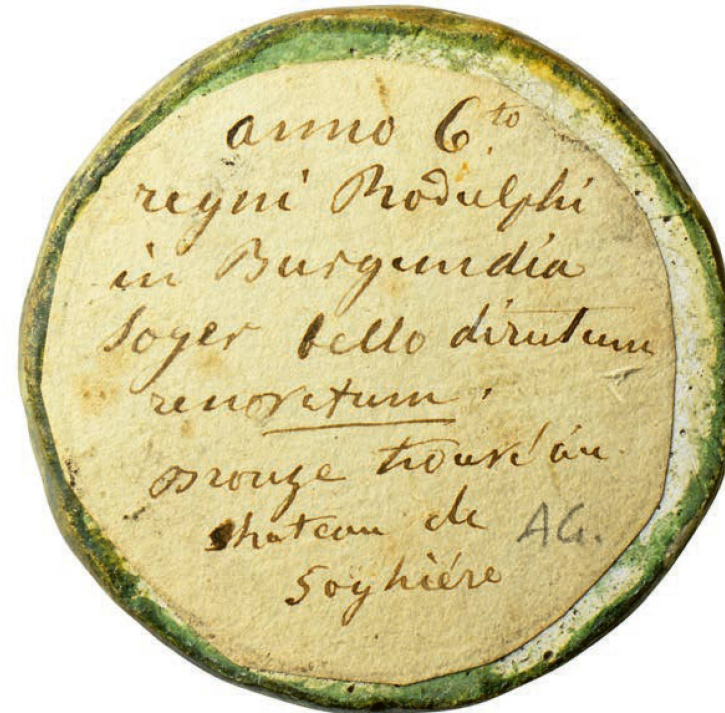 anno 6.to
regni Rodulphi
in Burgundia
Soyer bello dirutum
renovatum.
Bronze trouvé au
chateau de
AG.
Soyhiére